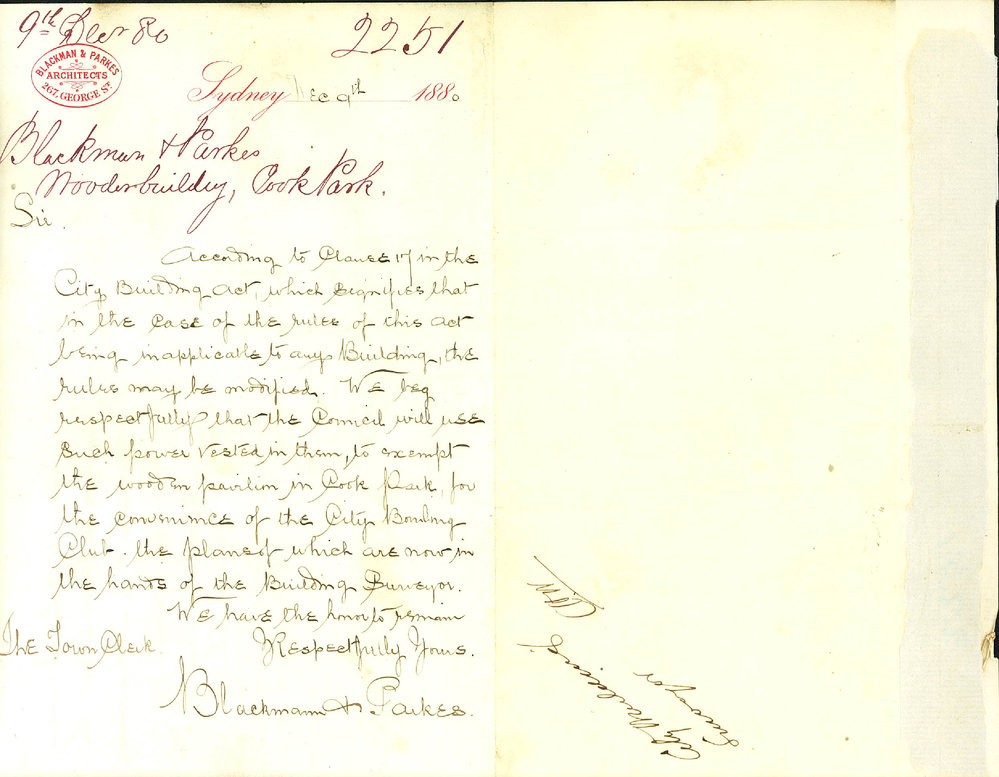 9th Decr 80
2251
BLACKMAN & PARKES
ARCHITECTS
267, GEORGE ST.
Sydney Dec 9th 1880
Blackman & Parkes
Woodenbuilding, Cook Park.
Sir.
According to Clause 17 in the
City Building Act, which signifies that
in the case of the rules of this act
being inapplicable to any Building, the
rules may be modified. We beg
respectfully that the Council will use
such power vested in them, to exempt
the wooden pavilion in Cook Park, for
the convenience of the City Bowling
Club. the plans of which are now in
the hands of the Building Surveyor.
We have the honor to remain
The Town Clerk. Respectfully Yours.
Blackmann & Parkes.
City
Surveyor